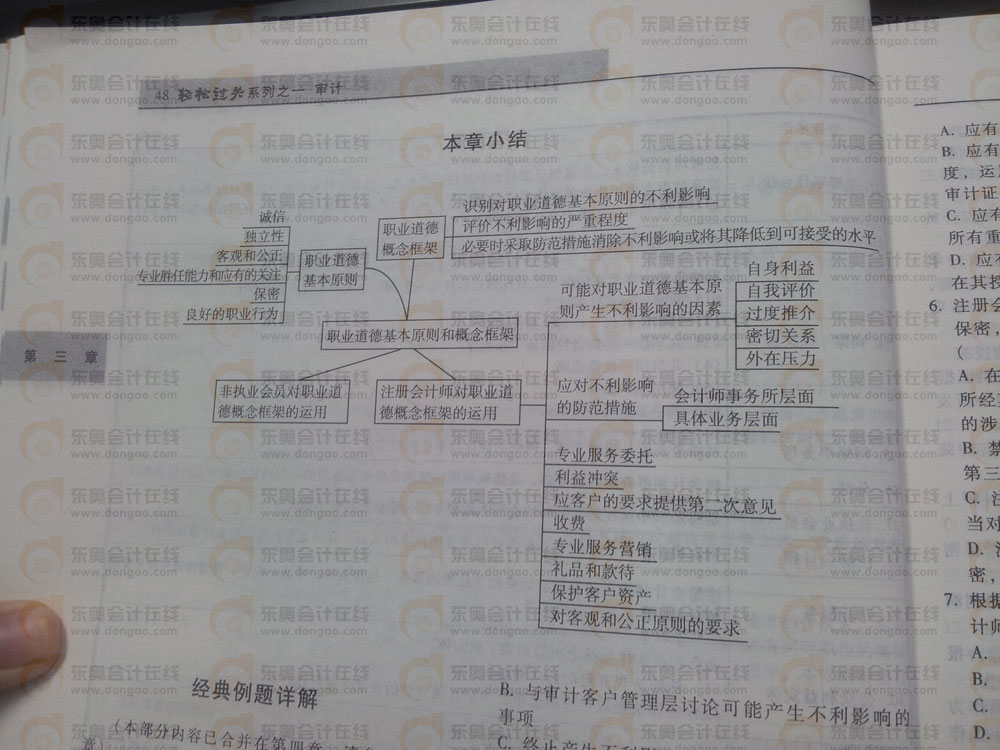 48 轻松过关系列之一 审计
本章小结
诚信
独立性
客观和公正
专业胜任能力和应有的关注
保密
良好的职业行为
职业道德
基本原则
职业道德
概念框架
识别对职业道德基本原则的不利影响
评价不利影响的严重程度
必要时采取防范措施消除不利影响或将其降低到可接受的水平
职业道德基本原则和概念框架
非执业会员对职业道
德概念框架的运用
注册会计师对职业道
德概念框架的运用
可能对职业道德基本原
则产生不利影响的因素
自身利益
自我评价
过度推介
密切关系
外在压力
应对不利影响
的防范措施
会计师事务所层面
具体业务层面
专业服务委托
利益冲突
应客户的要求提供第二次意见
收费
专业服务营销
礼品和款待
保护客户资产
对客观和公正原则的要求
第三章
经典例题详解
（本部分内容已合并在第四章
B. 与审计客户管理层讨论可能产生不利影响的
事项
C. 终止产生不利
A. 应有
B. 应有
度，运
审计证
C. 应有
所有重
D. 应
在其授
6. 注册会
保密，
（
A. 在
所经
的涉
B. 禁
第三
C. 注
当对
D.
密，
7. 根据
计师
A.
B.
C.
D.
东奥会计在线
www.dongao.com